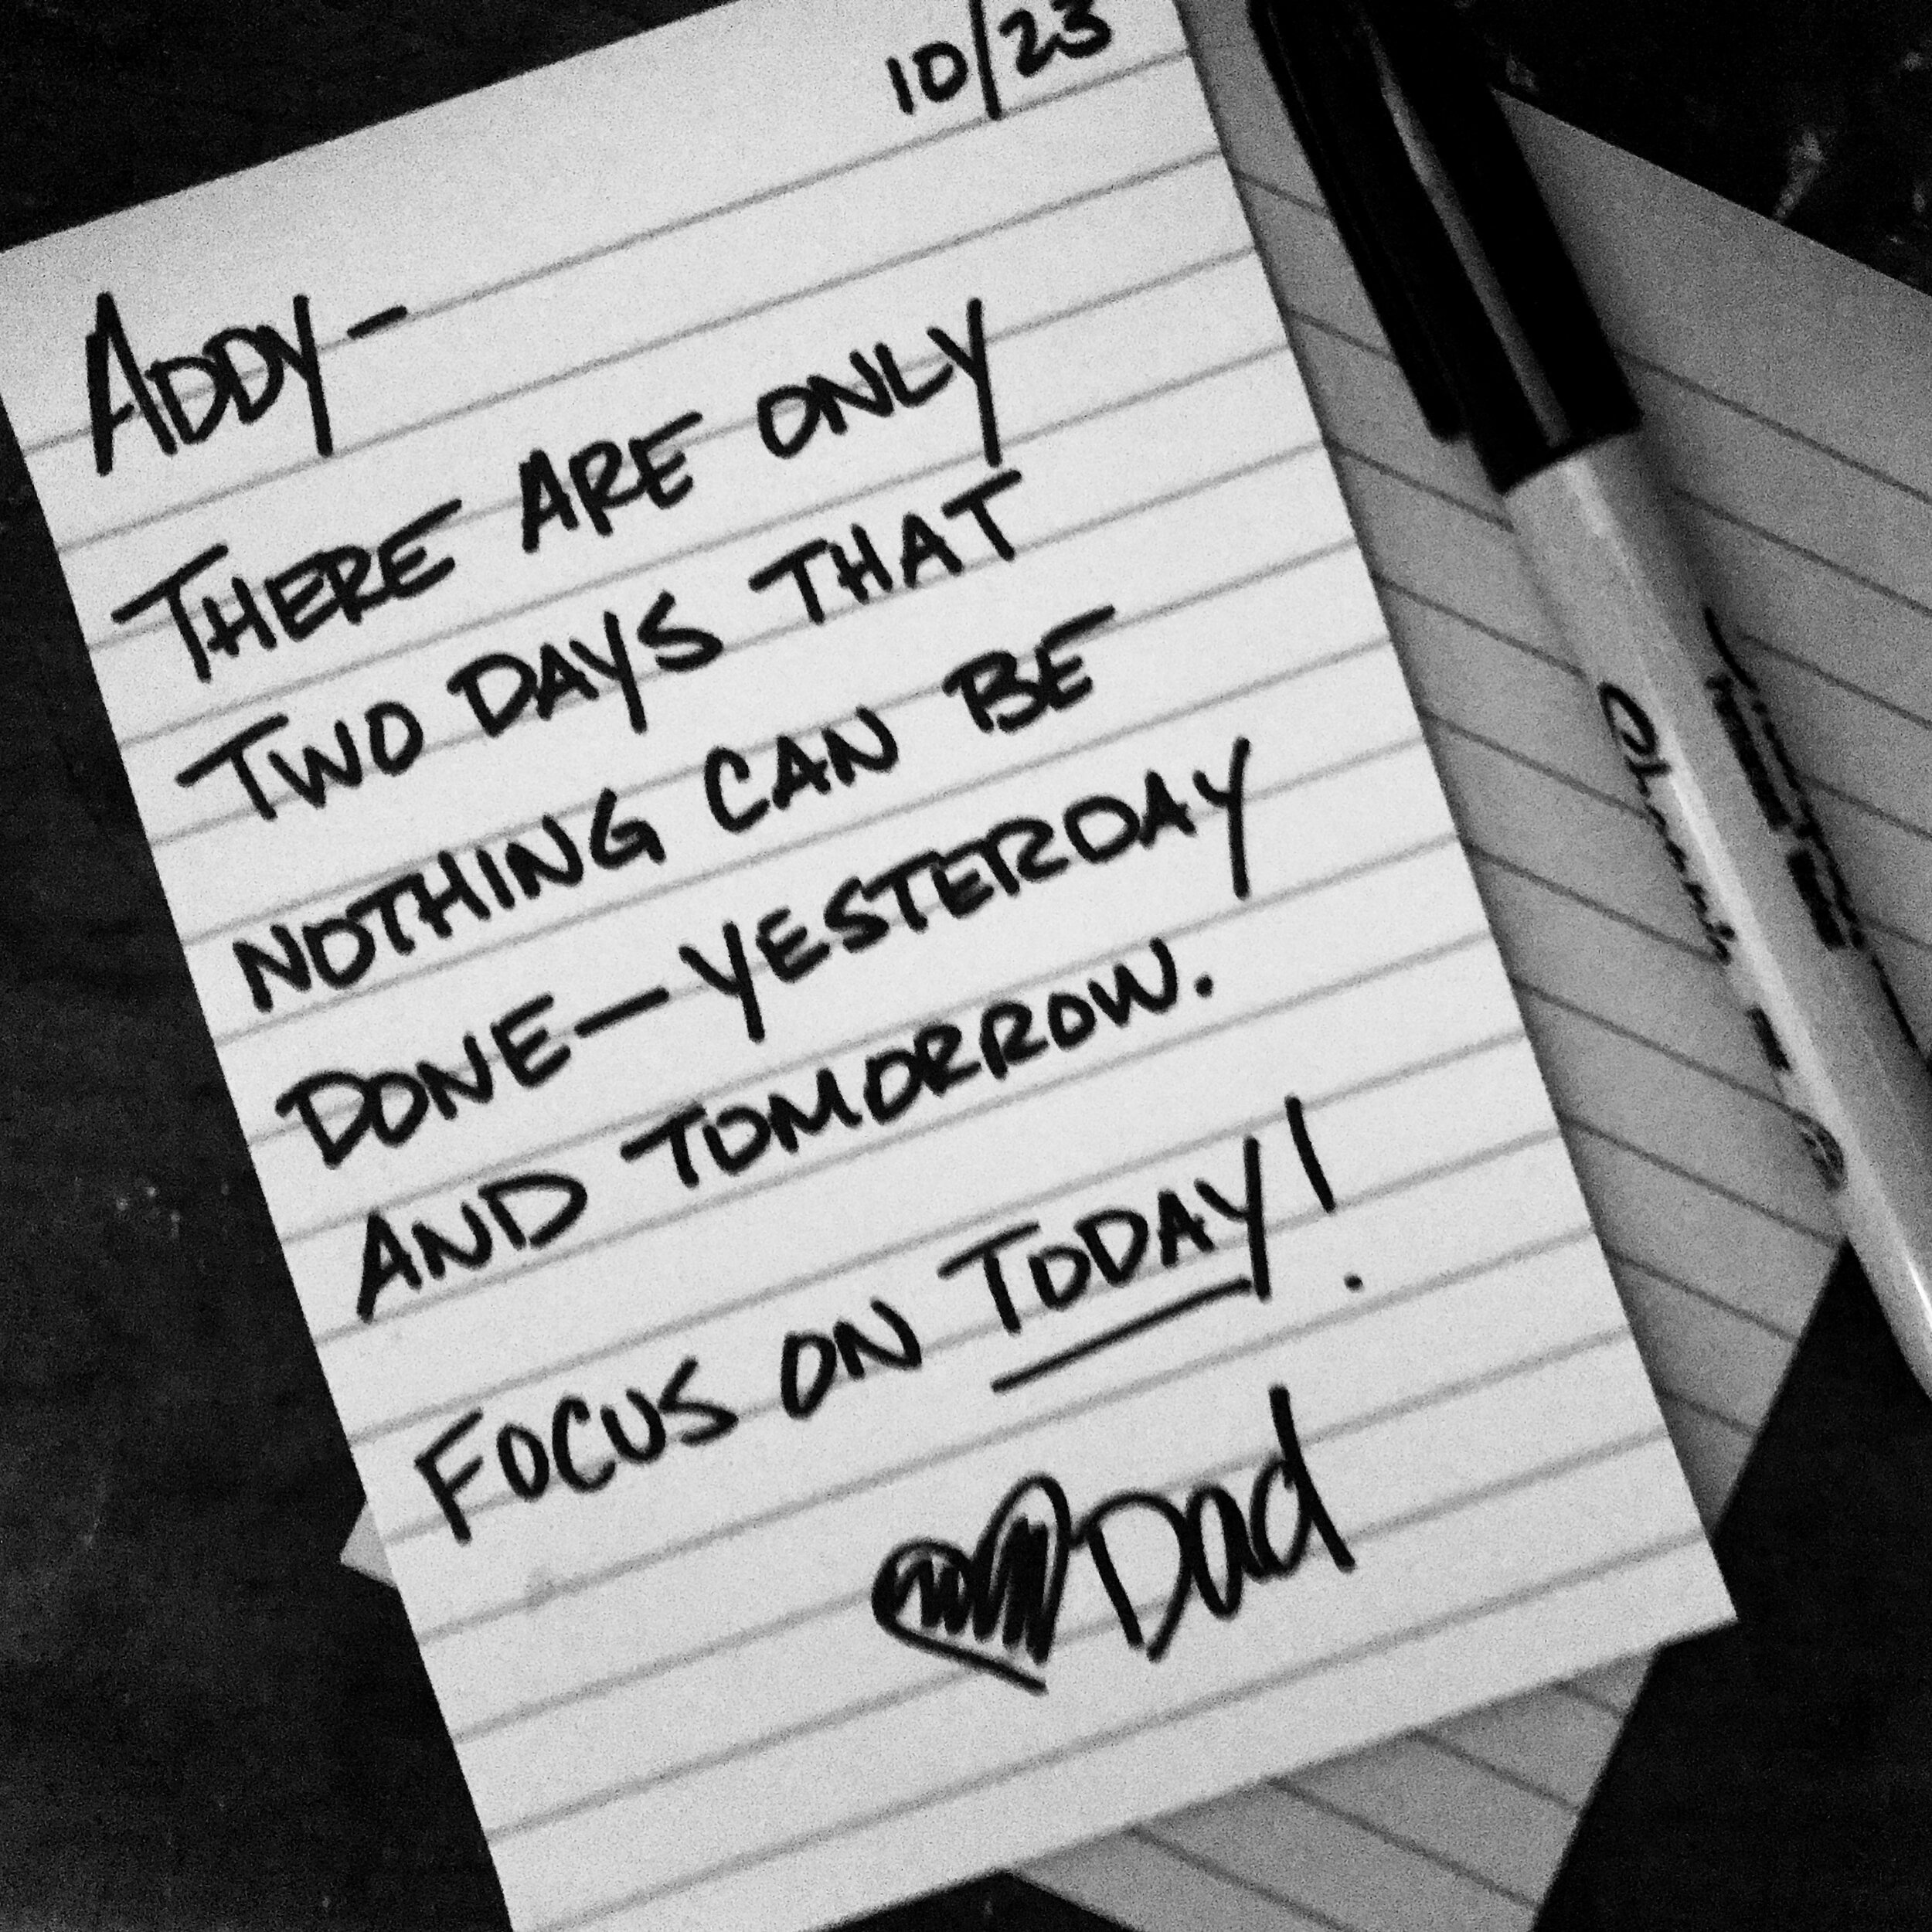 10/23
ADDY-
THERE ARE ONLY
TWO DAYS THAT
NOTHING CAN BE
DONE—YESTERDAY
AND TOMORROW.
FOCUS ON TODAY!
Dad